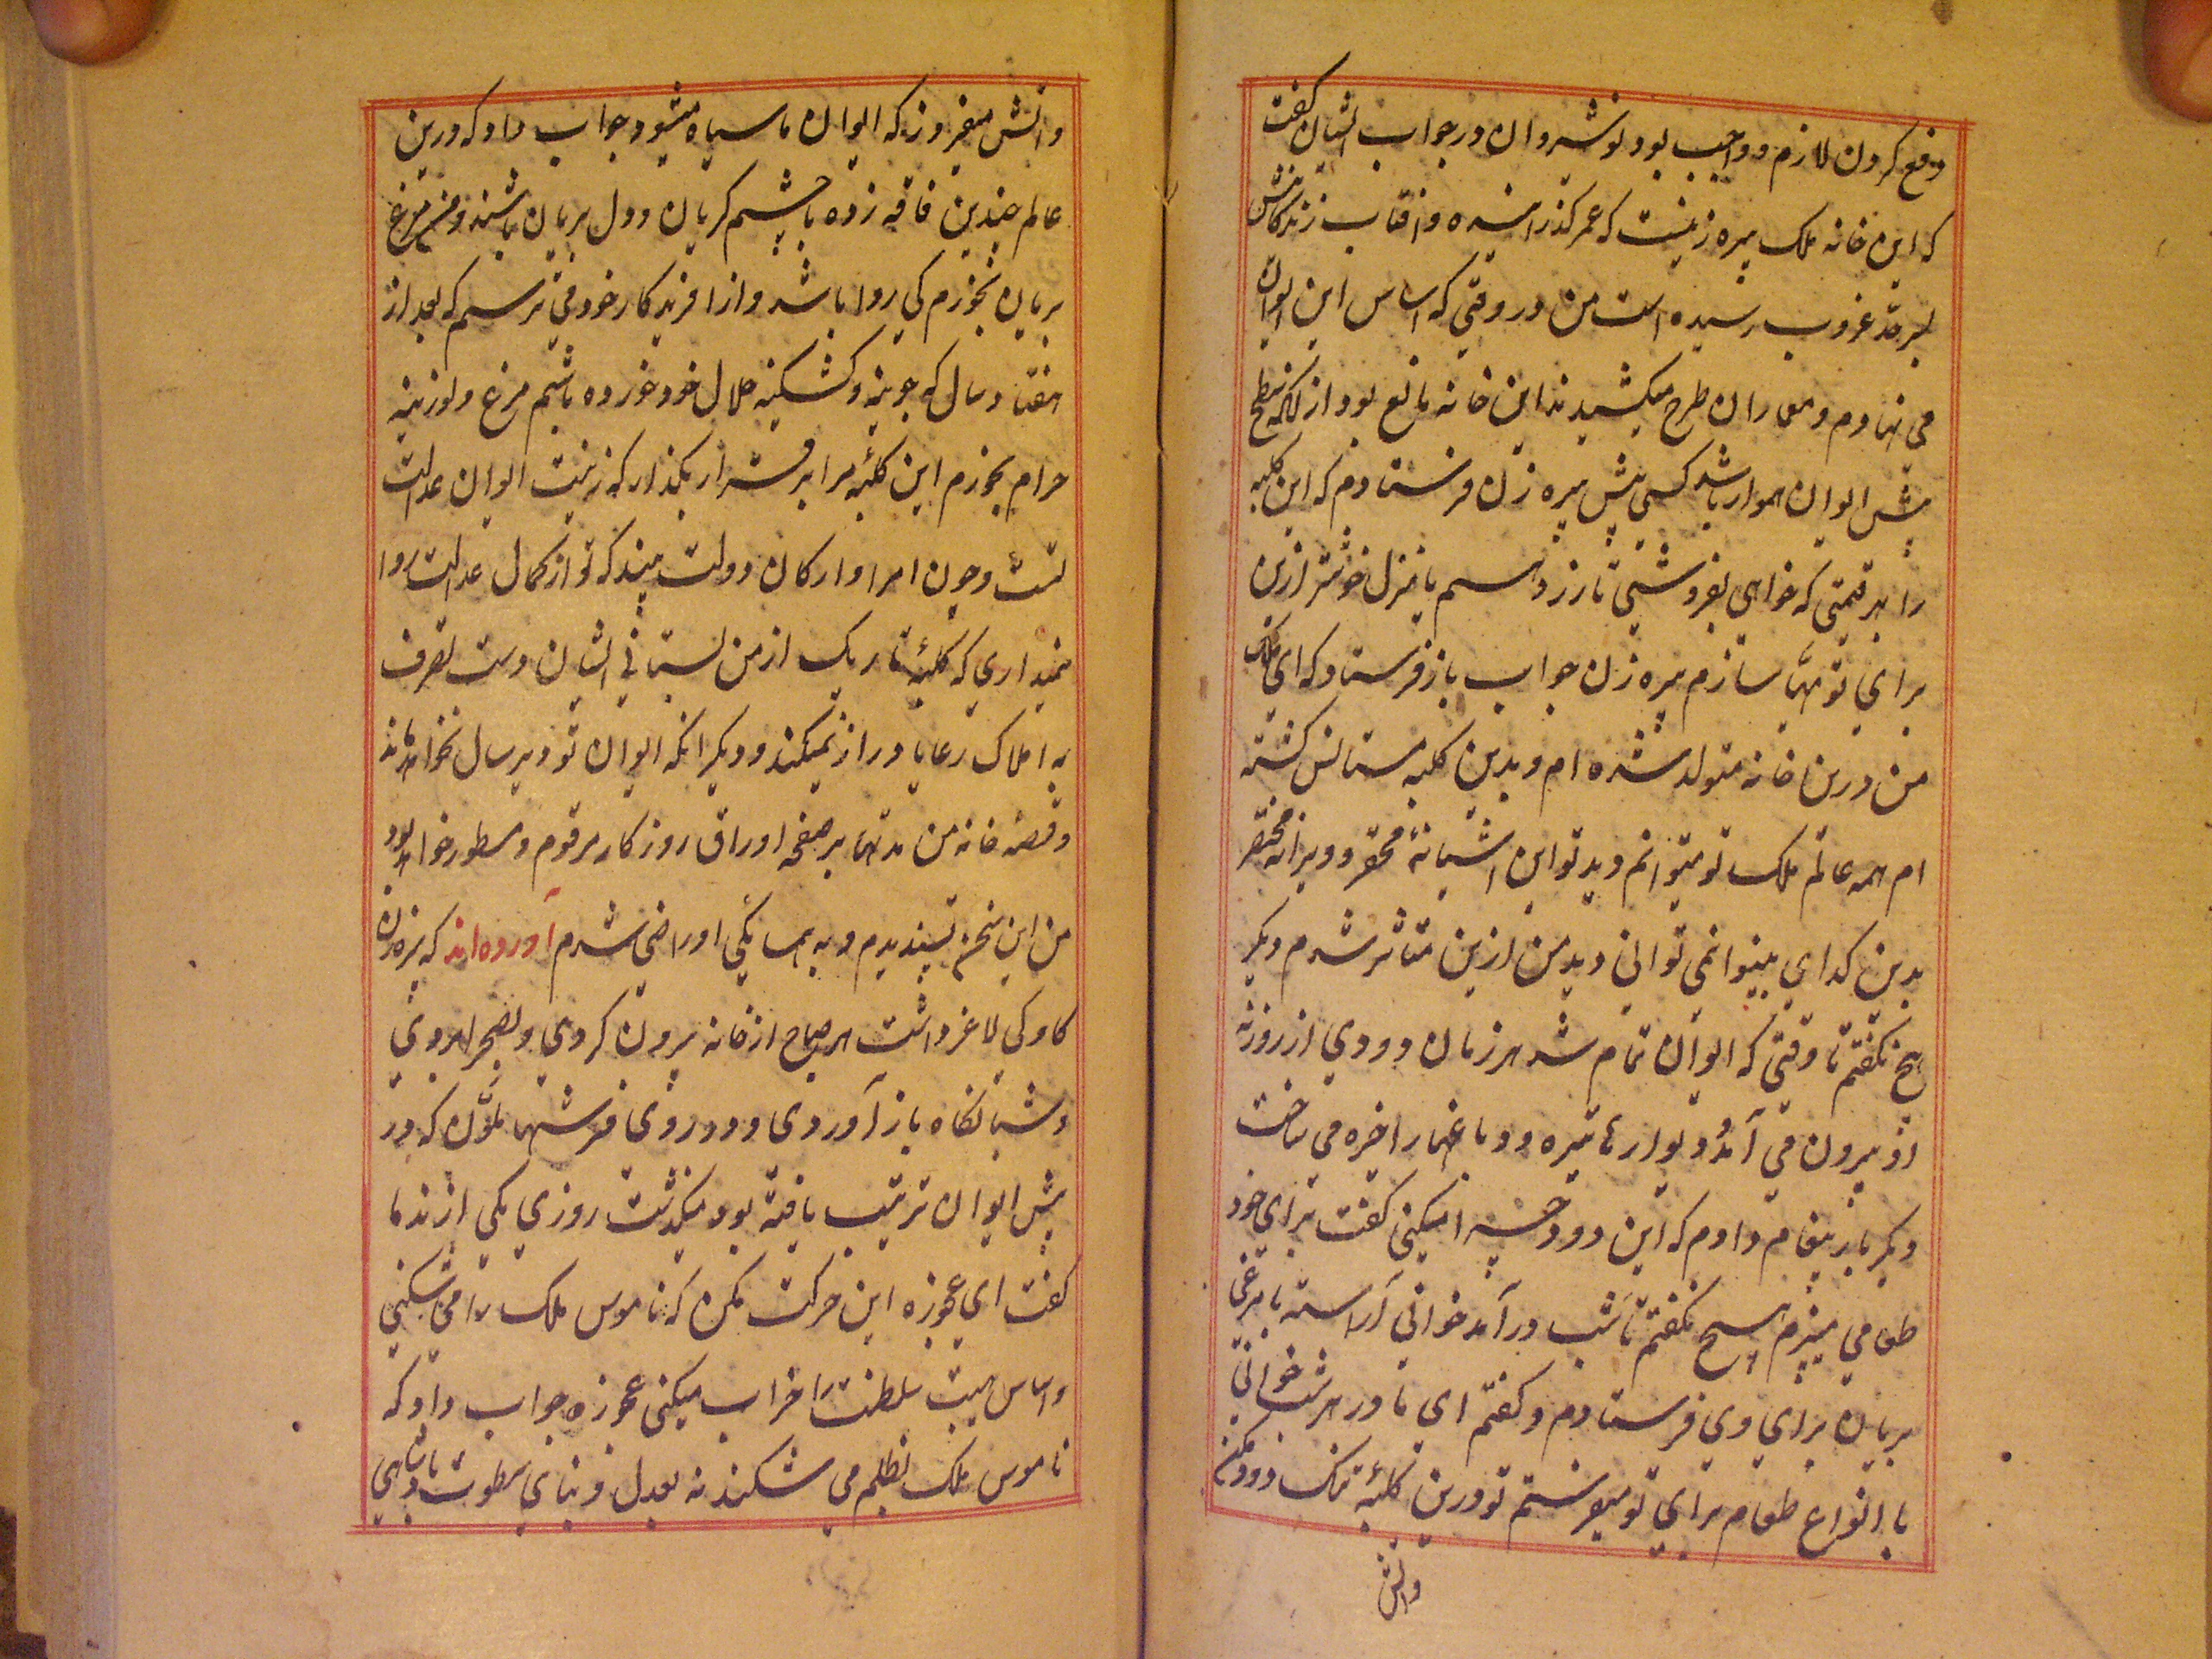 دفع کردن لازم و واجب بود نوشیروان در جواب ایشان گفت
که این خانه ملک پیره زنیست که عمر گذرانیده و افتاب زندگانیش
بسرحد غروب رسیده است من در وقتی که اساس این ایوان
می نهادم و معماران طرح میکشیدند این خانه مانع بود از انکه سطح
پیش ایوان هموار باشد کسی پیش پیره زن فرستادم که این کلبه
را بهر قیمتی که خواهی بفروشی تا زر دهم یا منزل خوشتر ازین
برای تو مهیا سازم پیره زن جواب باز فرستاد که ای ملک
من درین خانه متولد شده ام و بدین کلبه مستانس گشته
ام همه عالم ملک تو میتوانم دید تو این اشیانهٔ محقر و ویرانه مختصر
بدین گدای بینوا نمی توانی دید من ازین متاثر شدم دیگر
هیچ نگفتم تا وقتی که ایوان تمام شد هر زمان دودی از روزنه
او بیرون می آمد و دیوارها تیره و دماغها را خیره می ساخت
دیگر باز پیغام دادم که این دود چرا میکنی گفت برای خود
طعامی میپزم هیچ نگفتم تا شب درآمد خوانی آراسته با مرغی
بریان برای وی فرستادم و گفتم ای مادر هر شب خوانی
با انواع طعام برای تو میفرستم تو درین کلبهٔ تنگ دود مکن
واتش
واتش میفروز که ایوان ما سیاه میشود جواب داد که درین
عالم چندین فاقه زده با چشم گریان و دل بریان باشند و من مرغ
بریان بخورم کی روا باشد و از افریدگار خود می ترسم که بعد از
هفتاد سال که جوینه و کشکینه حلال خود خورده باشم مرغ و لوزینه
حرام بخورم این کلبهٔ مرا برقرار بگذار که زینت ایوان عدالت
تست و چون امرا و ارکان دولت ببینند که تو از کمال عدالت روا
نمیداری که کلبهٔ تاریک از من بستانی ایشان دست تصرف
به املاک رعایا دراز نمیکنند و دیگر انکه ایوان تو دیر سال نخواهد ماند
و قصه خانه من مدتها بر صفحه اوراق روزگار مرقوم و مسطور خواهد بود
من این سخن پسندیدم و به همسایگی او راضی شدم آورده اند که پیره زن
گاوکی لاغر داشت هر صباح از خانه بیرون کردی و بصحرا بردی
و شبانگاه باز آوردی و در روی فرشهاء ملون که در
پیش ایوان ترتیب یافته بود میگذشت روزی یکی از ندما
گفت ای عجوزه این حرکت مکن که ناموس ملک را می شکنی
و اساس هیبت سلطنت را خراب میکنی عجوزه جواب داد که
ناموس ملک بظلم می شکند نه بعدل و بنای سطوت پادشاهی